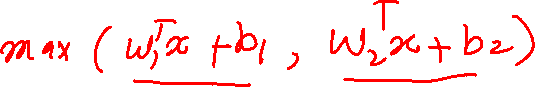 max ( w₁ᵀx + b₁ , w₂ᵀx + b₂ )